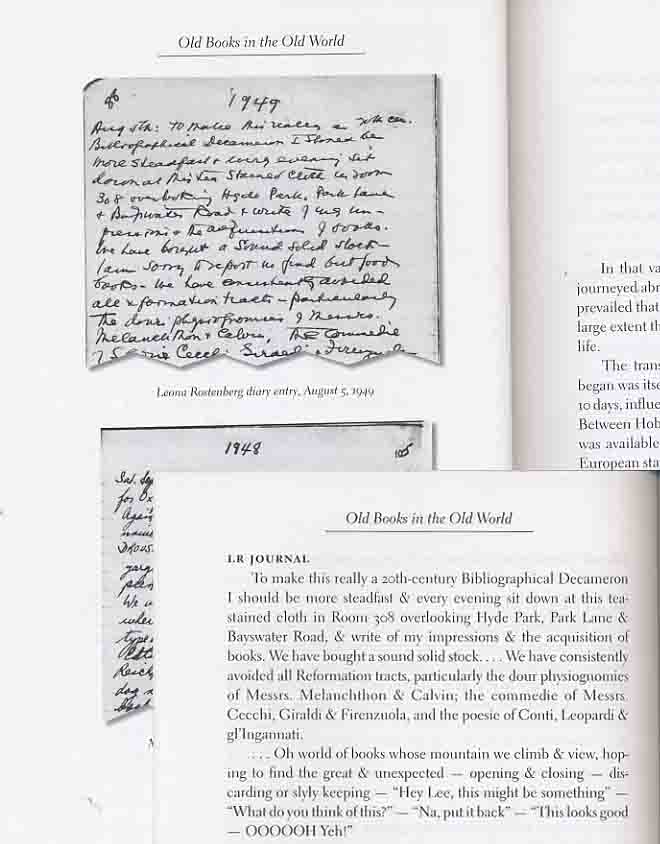 Old Books in the Old World
1949
Aug 5th: To make this really a 20th cen.
Bibliographical Decameron I should be
more steadfast & every evening sit
down at this tea stained cloth in room
308 overlooking Hyde Park, Park Lane
& Bayswater Road & write of my im-
pressions & the acquisition of books.
We have bought a sound solid stock –
I am sorry to report we find but few
books – We have consistently avoided
all reformation tracts – particularly
the dour physiognomies of Messrs.
Melanchthon & Calvin, the Commedie
Cecchi Giraldi & Firenzuola
Leona Rostenberg diary entry, August 5, 1949
1948
105
Sat. Sep
for Ox
Again
We w
Reich
In that va
journeyed abr
prevailed that
large extent th
life.
The trans
began was itse
10 days, influe
Between Hob
was available
European sta
Old Books in the Old World
LR JOURNAL
To make this really a 20th-century Bibliographical Decameron
I should be more steadfast & every evening sit down at this tea-
stained cloth in Room 308 overlooking Hyde Park, Park Lane &
Bayswater Road, & write of my impressions & the acquisition of
books. We have bought a sound solid stock. . . . We have consistently
avoided all Reformation tracts, particularly the dour physiognomies
of Messrs. Melanchthon & Calvin; the commedie of Messrs.
Cecchi, Giraldi & Firenzuola, and the poesie of Conti, Leopardi &
gl'Ingannati.
. . . . Oh world of books whose mountain we climb & view, hop-
ing to find the great & unexpected — opening & closing — dis-
carding or slyly keeping — “Hey Lee, this might be something” —
“What do you think of this?” — “Na, put it back” — “This looks good
— OOOOOH Yeh!”